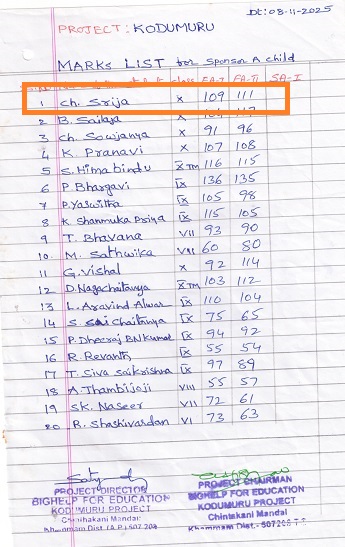 Dt: 08-11-2025
PROJECT: KODUMURU
MARKS LIST for Sponsor A child
class FA-I FA-II SA-I
1 Ch. Srija X 109 111
2 B. Sailaja X
3 Ch. Sowjanya X 91 96
4 K. Pranavi X 107 108
5 S. Himabindu X TM 116 115
6 P. Bhargavi IX 136 135
7 P. Yaswitha IX 105 98
8 K. Shanmuka Priya IX 115 105
9 T. Bhavana VII 93 90
10 M. Sathwika VII 60 80
11 G. Vishal X 92 114
12 D. Nagachaitanya X TM 103 112
13 L. Aravind Alwar IX 110 104
14 S. Sai Chaitanya IX 75 65
15 P. Dheeraj B.N Kumar IX 94 92
16 R. Revanth IX 55 54
17 T. Siva Saikrishna IX 97 89
18 A. Thambijoji VIII 55 57
19 SK. Naseer VII 72 61
20 R. Shashivardan VI 73 63
PROJECT DIRECTOR
BIGHELP FOR EDUCATION
KODUMURU PROJECT
Chintakani Mandal
Khammam Dist. (A.P.) 507 208
PROJECT CHAIRMAN
BIGHELP FOR EDUCATION
KODUMURU PROJECT
Chintakani Mandal
Khammam Dist.- 507208